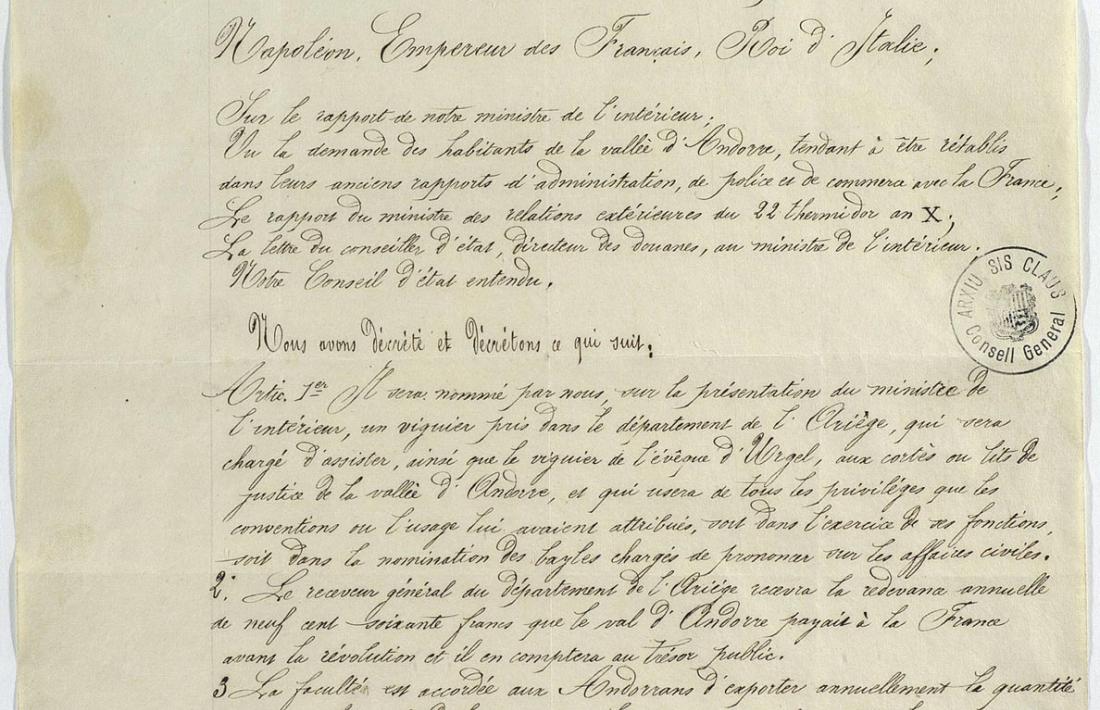 Napoléon, Empereur des Français, Roi d'Italie;
Sur le rapport de notre ministre de l'intérieur;
Vu la demande des habitants de la vallée d'Andorre, tendant à être rétablis
dans leurs anciens rapports d'administration, de police et de commerce avec la France;
Le rapport du ministre des relations extérieures du 22 thermidor an X;
La lettre du conseiller d'état, directeur des douanes, au ministre de l'intérieur.
Notre Conseil d'état entendu.
ARXIU SIS CLAUS
Consell General
Nous avons décrété et décrétons ce qui suit:
Artic. 1er Il sera nommé par nous, sur la présentation du ministre de
l'intérieur, un viguier pris dans le département de l'Ariège, qui sera
chargé d'assister, ainsi que le viguier de l'évêque d'Urgel, aux cortès ou lits de
justice de la vallée d'Andorre, et qui usera de tous les priviléges que les
conventions ou l'usage lui avaient attribués, soit dans l'exercice de ses fonctions,
soit dans la nomination des bayles chargés de prononcer sur les affaires civiles.
2: Le receveur général du département de l'Ariége recevra la redevance annuelle
de neuf cent soixante francs que le val d'Andorre payait à la France
avant la révolution et il en comptera au trésor public.
3 La faculté est accordée aux Andorrans d'exporter annuellement la quantité